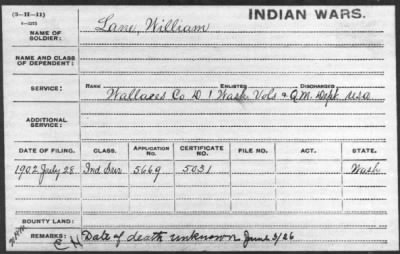 (3-H-11)
INDIAN WARS.
NAME OF SOLDIER: Lane, William
NAME AND CLASS OF DEPENDENT:
SERVICE: RANK ENLISTED DISCHARGED
Wallaces Co D 1 Wash Vols & Q.M. Dept. USA
ADDITIONAL SERVICE:
DATE OF FILING. CLASS. APPLICATION NO. CERTIFICATE NO. FILE NO. ACT. STATE.
1902 July 28 Ind Sur 5669 5031 Wash
BOUNTY LAND:
REMARKS: Date of death unknown June 3/26